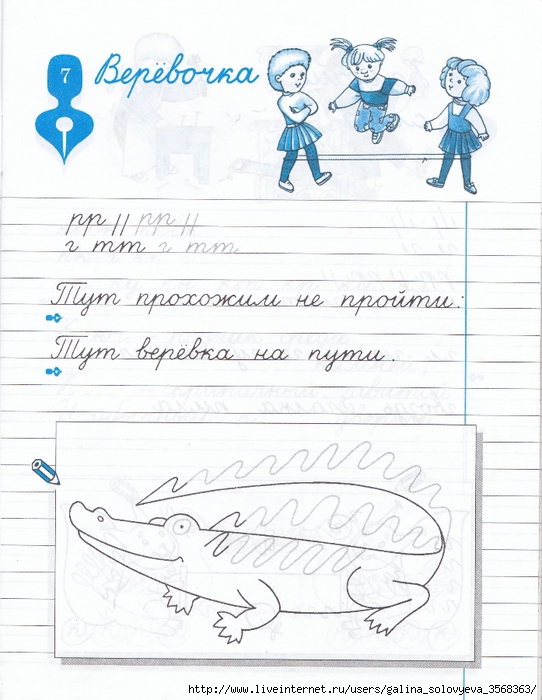 7
Верёвочка
рр || рр ||
г тт г тт
Тут прохожим не пройти:
Тут верёвка на пути.
http://www.liveinternet.ru/users/galina_solovyeva_3568363/